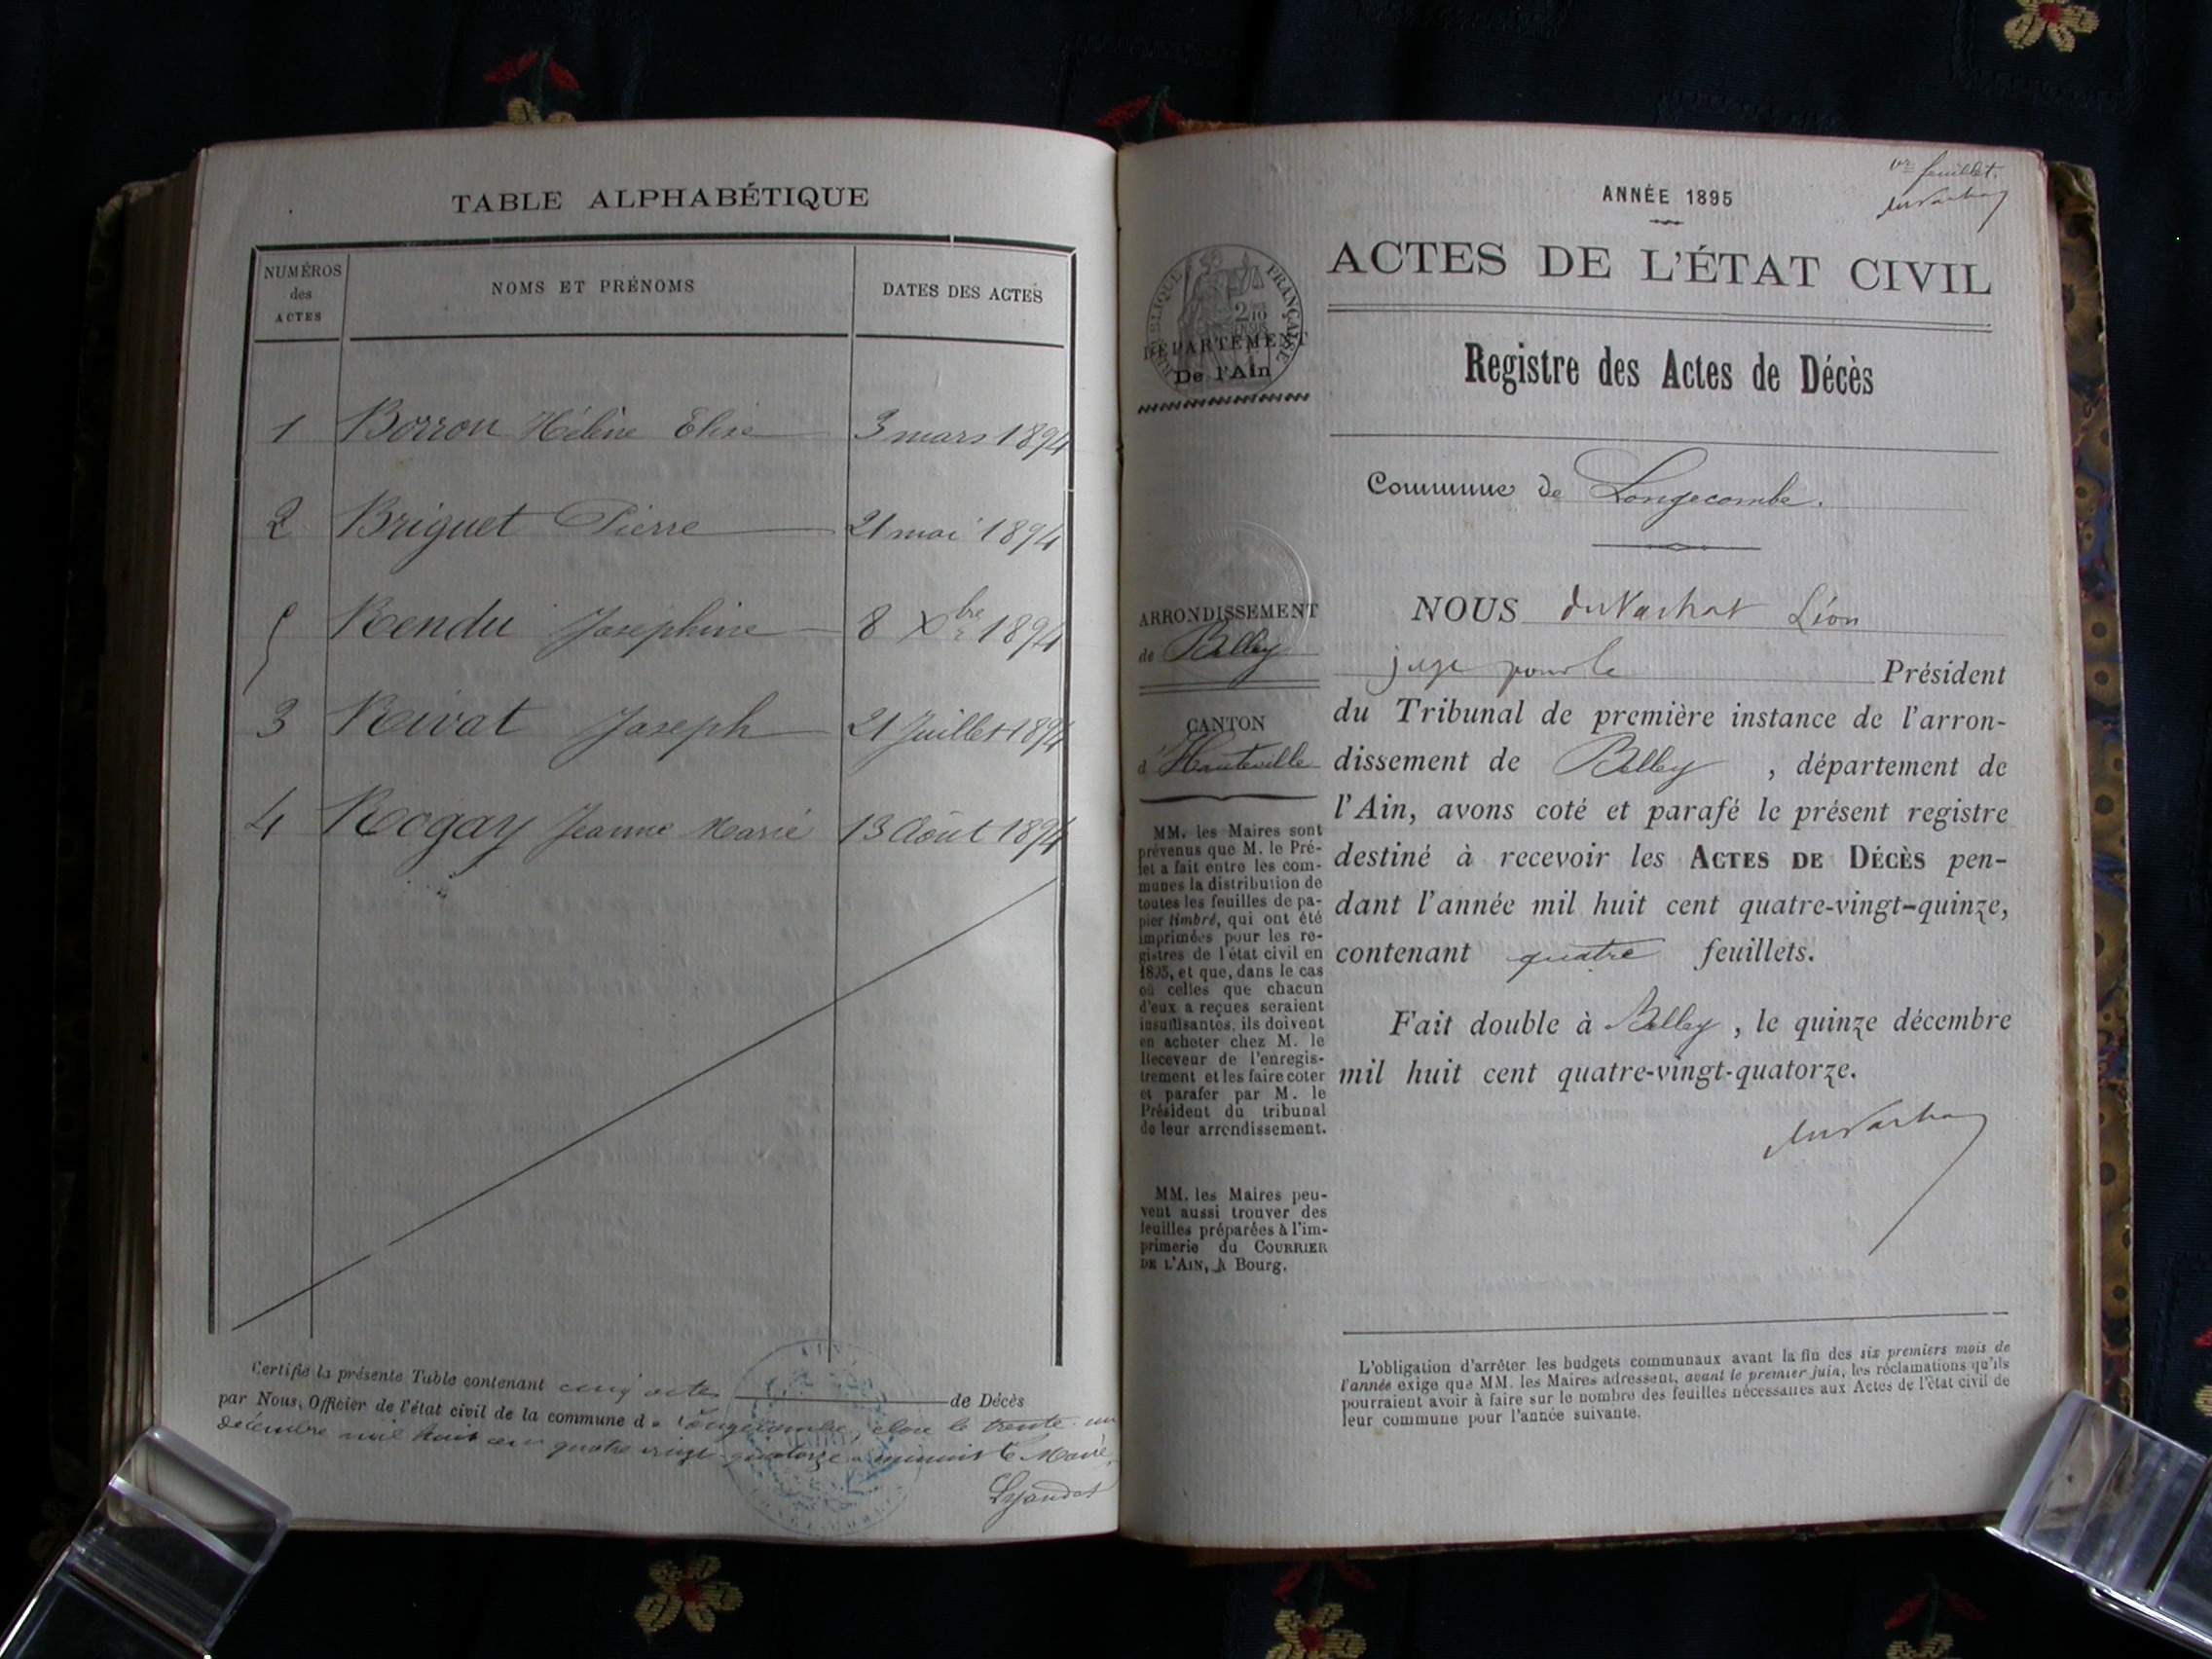 TABLE ALPHABÉTIQUE
NUMÉROS
des
ACTES
NOMS ET PRÉNOMS
DATES DES ACTES
1 Borron Hélène Elise 3 mars 1894
2 Briguet Pierre 21 mai 1894
5 Rendu Josephine 8 Xbre 1894
3 Rivat Joseph 21 Juillet 1894
4 Rogay Jeanne Marie 13 Août 1894
Certifié la présente Table contenant cinq actes de Décès
par Nous, Officier de l'état civil de la commune de Longecombe, clos le trente-un
décembre mil huit cent quatre vingt quatorze à minuit Le Maire,
Lyaudet
1er feuillet.
ANNÉE 1895
ACTES DE L'ÉTAT CIVIL
RÉPUBLIQUE FRANÇAISE
2/10
EN SUS
DÉPARTEMENT
De l'Ain
Registre des Actes de Décès
Commune de Longecombe.
ARRONDISSEMENT
de Belley
CANTON
d'Hauteville
MM. les Maires sont
prévenus que M. le Pré-
fet a fait entre les com-
munes la distribution de
toutes les feuilles de pa-
pier timbré, qui ont été
imprimées pour les re-
gistres de l'état civil en
1895, et que, dans le cas
où celles que chacun
d'eux a reçues seraient
insuffisantes, ils doivent
en acheter chez M. le
Receveur de l'enregis-
trement et les faire coter
et parafer par M. le
Président du tribunal
de leur arrondissement.
MM. les Maires peu-
vent aussi trouver des
feuilles préparées à l'im-
primerie du COURRIER
DE L'AIN, à Bourg.
NOUS duVachat Léon
juge pour le Président
du Tribunal de première instance de l'arron-
dissement de Belley, département de
l'Ain, avons coté et parafé le présent registre
destiné à recevoir les ACTES DE DÉCÈS pen-
dant l'année mil huit cent quatre-vingt-quinze,
contenant quatre feuillets.
Fait double à Belley, le quinze décembre
mil huit cent quatre-vingt-quatorze.
duVachat
L'obligation d'arrêter les budgets communaux avant la fin des six premiers mois de
l'année exige que MM. les Maires adressent, avant le premier juin, les réclamations qu'ils
pourraient avoir à faire sur le nombre des feuilles nécessaires aux Actes de l'état civil de
leur commune pour l'année suivante.